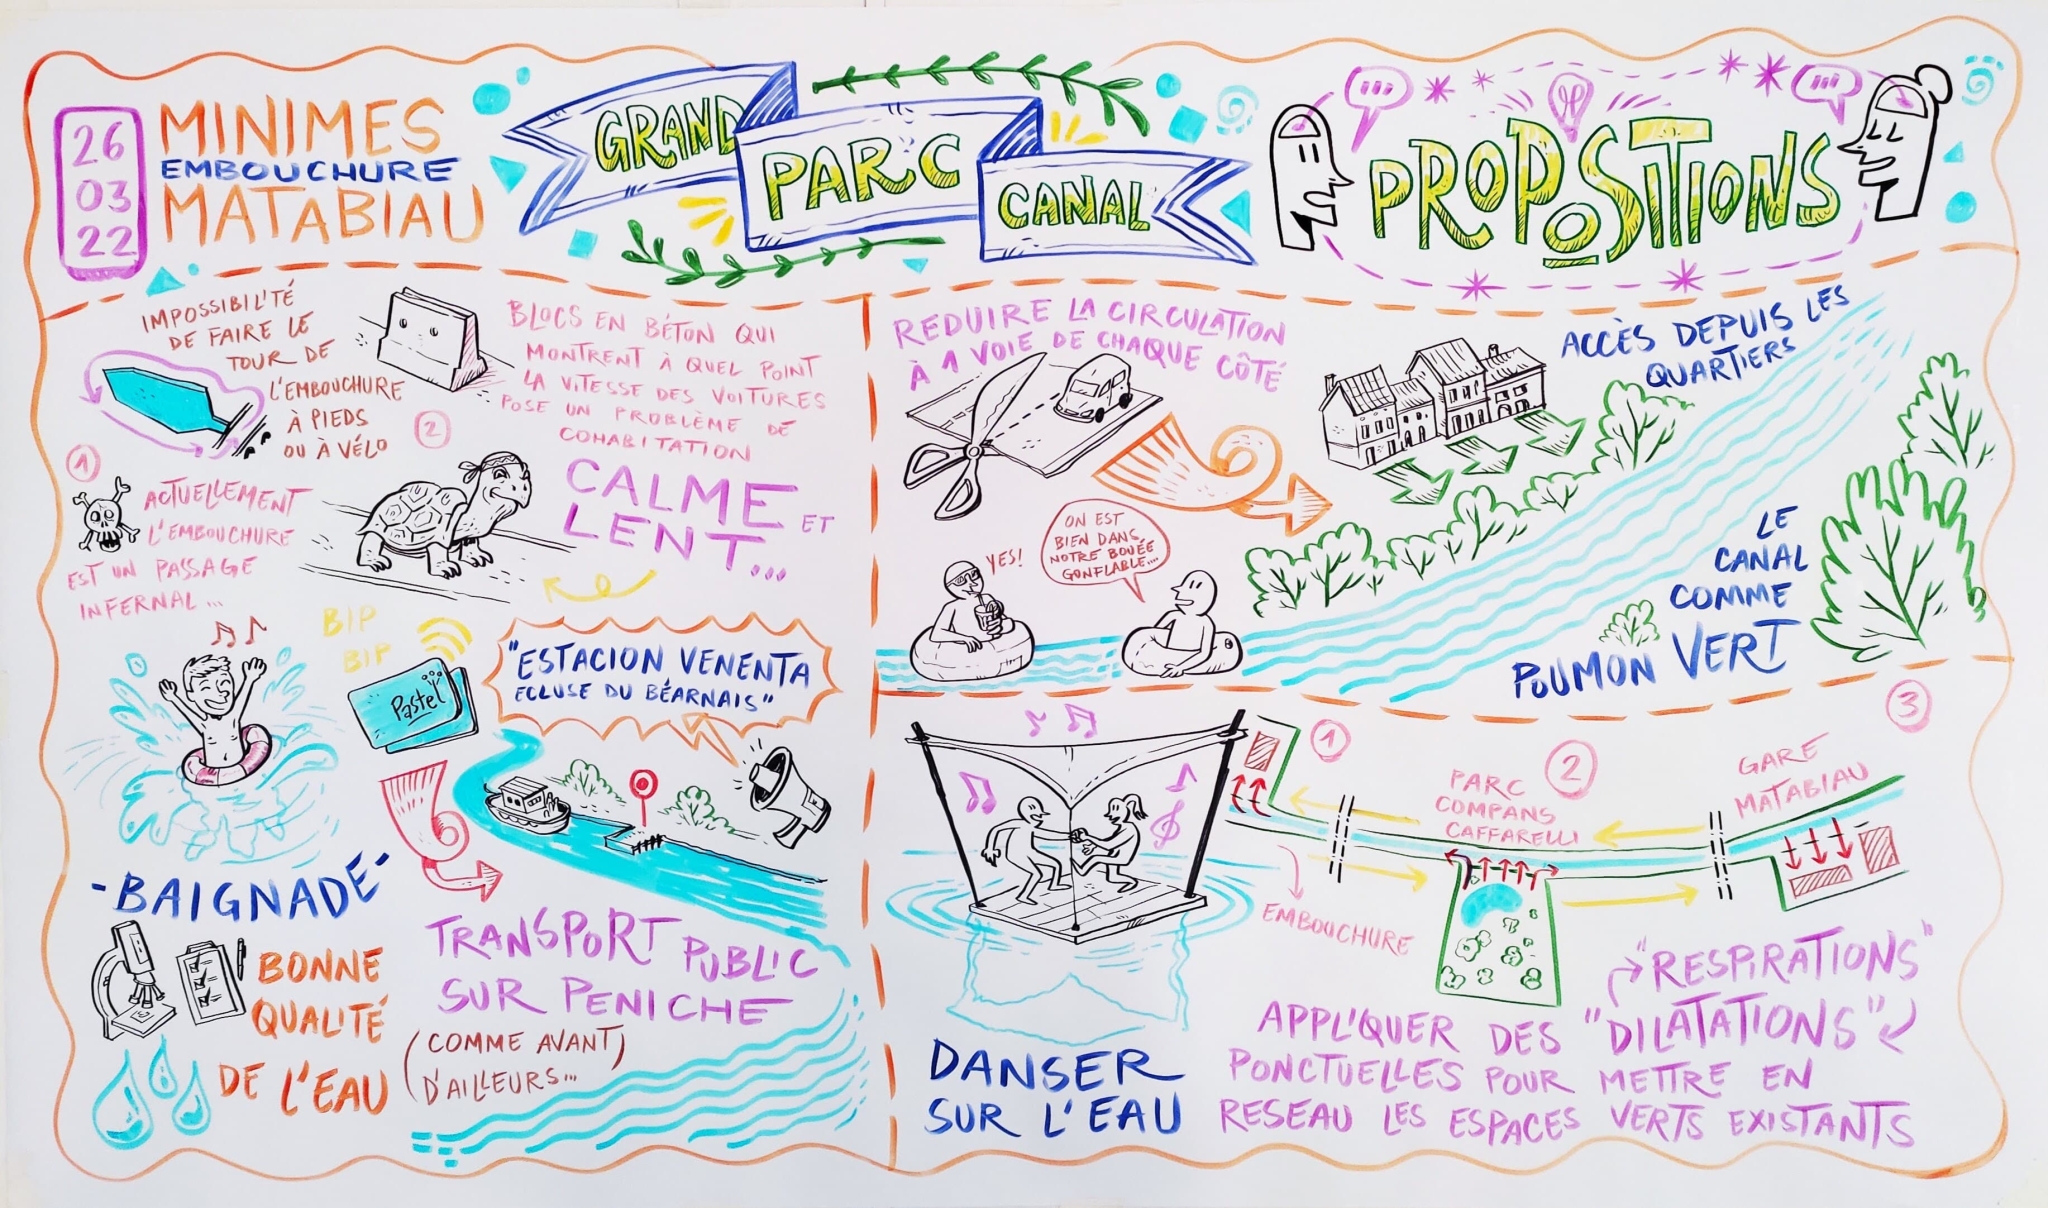 26
03
22
MINIMES
EMBOUCHURE
MATABIAU
GRAND
PARC
CANAL
PROPOSITIONS
IMPOSSIBILITÉ
DE FAIRE LE
TOUR DE
L'EMBOUCHURE
À PIEDS
OU À VÉLO
1
ACTUELLEMENT
L'EMBOUCHURE
EST UN PASSAGE
INFERNAL...
2
BLOCS EN BÉTON QUI
MONTRENT À QUEL POINT
LA VITESSE DES VOITURES
POSE UN PROBLÈME DE
COHABITATION
CALME ET
LENT...
BIP
BIP
Pastel
"ESTACION VENENTA
ECLUSE DU BÉARNAIS"
-BAIGNADE-
BONNE
QUALITÉ
DE L'EAU
TRANSPORT PUBLIC
SUR PENICHE
(COMME AVANT
D'AILLEURS...)
REDUIRE LA CIRCULATION
À 1 VOIE DE CHAQUE CÔTÉ
YES!
ON EST
BIEN DANS
NOTRE BOUÉE
GONFLABLE...
ACCÈS DEPUIS LES
QUARTIERS
LE
CANAL
COMME
POUMON VERT
DANSER
SUR L'EAU
1
EMBOUCHURE
2
PARC
COMPANS
CAFFARELLI
3
GARE
MATABIAU
"RESPIRATIONS"
APPLIQUER DES "DILATATIONS"
PONCTUELLES POUR METTRE EN
RESEAU LES ESPACES VERTS EXISTANTS